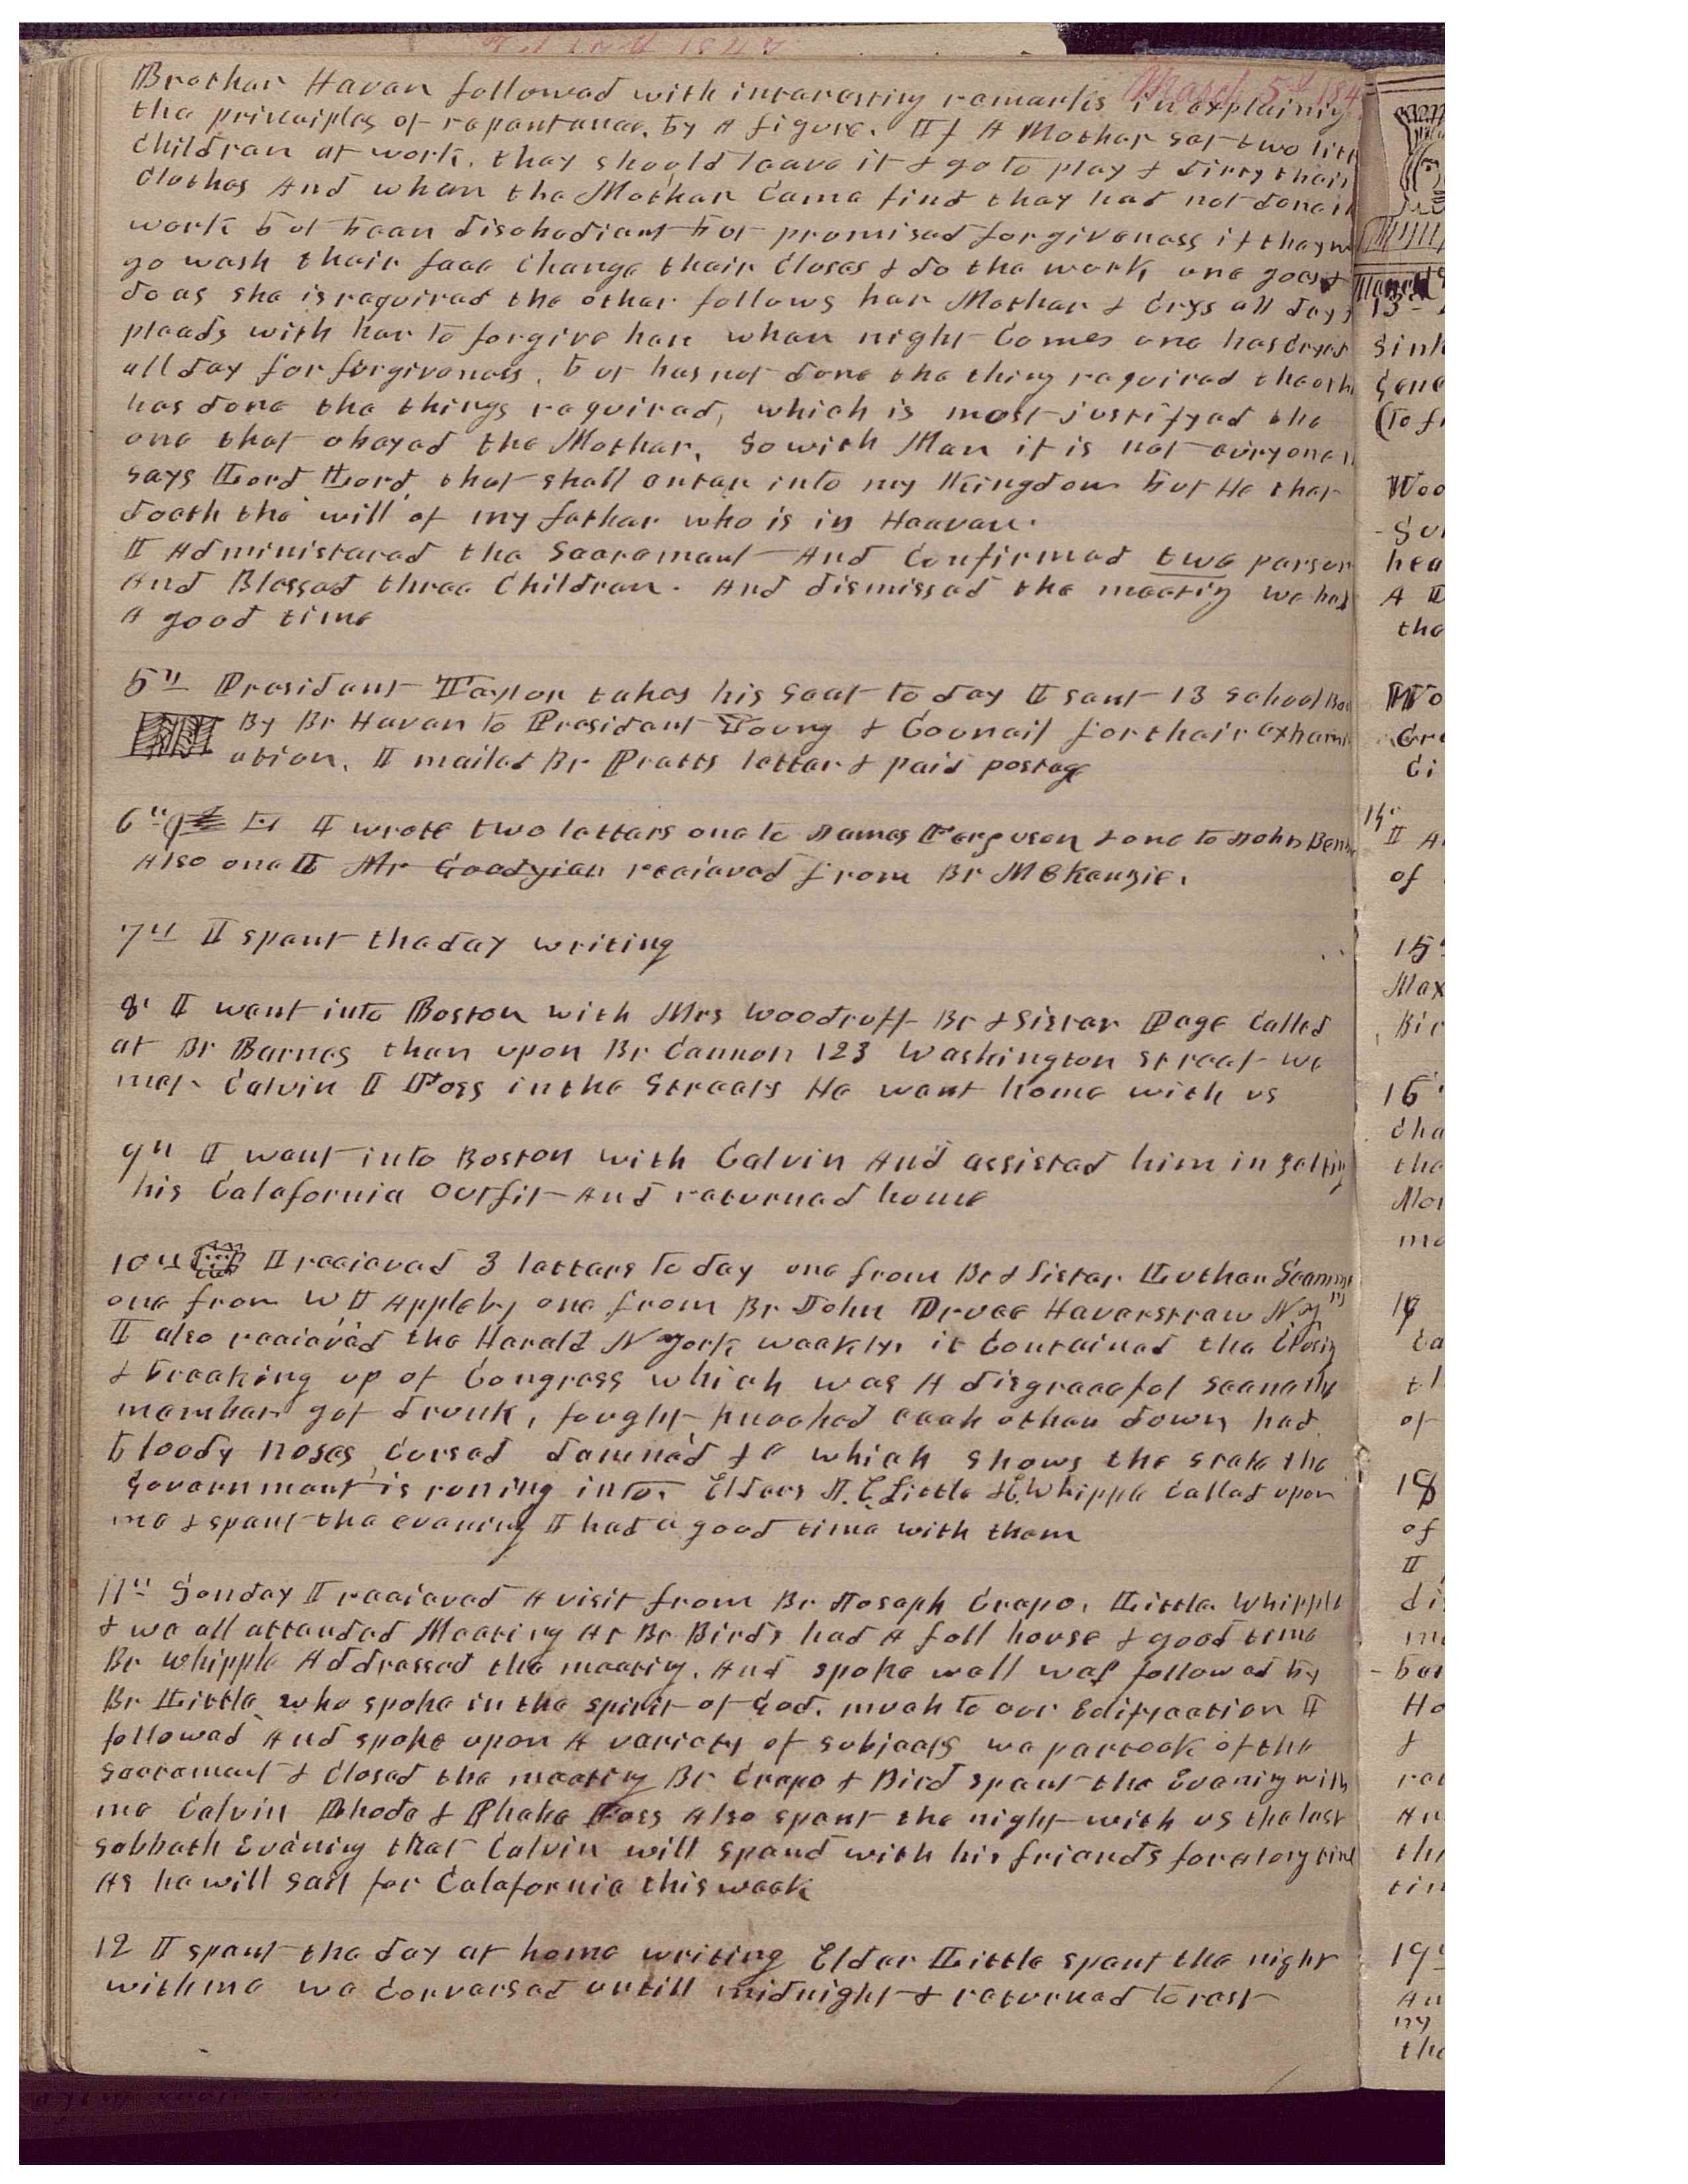 March 5th 184
Brother Haven followed with interesting remarks in explaining
the principles of repentance. by A figure. If A Mother set two litt
Children at work. they should leave it & go to play & dirty their
Clothes And when the Mother Came find they had not done
work but been disobediant but promised forgiveness if they
go wash their face Change their Closes & do the work one goes &
do as she is required the other follows her Mother & Crys all day &
pleads with her to forgive her when night Comes one has Cryed
all day for forgiveness, but has not done the thing required the oth
has done the things required, which is most justifyed the
one that obeyed the Mother, So with Man it is not evry one
says Lord Lord, that shall enter into my Kingdom but He that
doeth the will of my father who is in Heaven.
I Administered the Sacrament And Confirmed two person
And Blessed three Children. And dismissed the meeting we had
A good time
5th President Taylor takes his seat to day I sent 13 school Boo
By Br Haven to President Young & Council for their exham
ation. I mailed Br Pratts letter & paid postage
6th I wrote two letters one to James Ferguson & one to John Benn
Also one Mr Goodyien receieved from Br McKenzie.
7th I spent the day writing
8th I went into Boston with Mrs Woodruff Br & Sister Page Called
at Br Barnes then upon Br Cannon 123 Washington street we
met Calvin I Foss in the Streets He went home with us
9th I went into Boston with Calvin And assisted him in getting
his Calafornia Outfit And returned home
10th I receieved 3 letters to day one from Br & Sister Luther Scammans
one from W I Appleby one from Br John Druce Haverstraw N Y
I also receieved the Herald N York weekly, it Contained the Closing
& breaking up of Congress which was A disgraceful scene
member got drunk, fought knocked each other down had
bloody noses Cursed damned &c which shows the state the
Government is runing into. Elders J. C. Little & E. Whipple Called upon
me & spent the evening I had a good time with them
11th Sunday I receieved A visit from Br Joseph Crapo. Little Whipple
& we all attended Meeting At Br Birds had A full house & good time
Br Whipple Addressed the meeting. And spoke well was followed by
Br Little who spoke in the spirit of God. much to our Edifycation I
followed And spoke upon A variety of subjects we partook of the
sacrament & Closed the meeting Br Crapo & Bird spent the Evening with
me Calvin Rhoda & Phebe Foss Also spent the night with us the last
sabbath Evening that Calvin will spend with his friends for along time
As he will sail for Calafornia this week
12 I spent the day at home writing Elder Little spent the night
with me we Conversed untill midnight & returned to rest